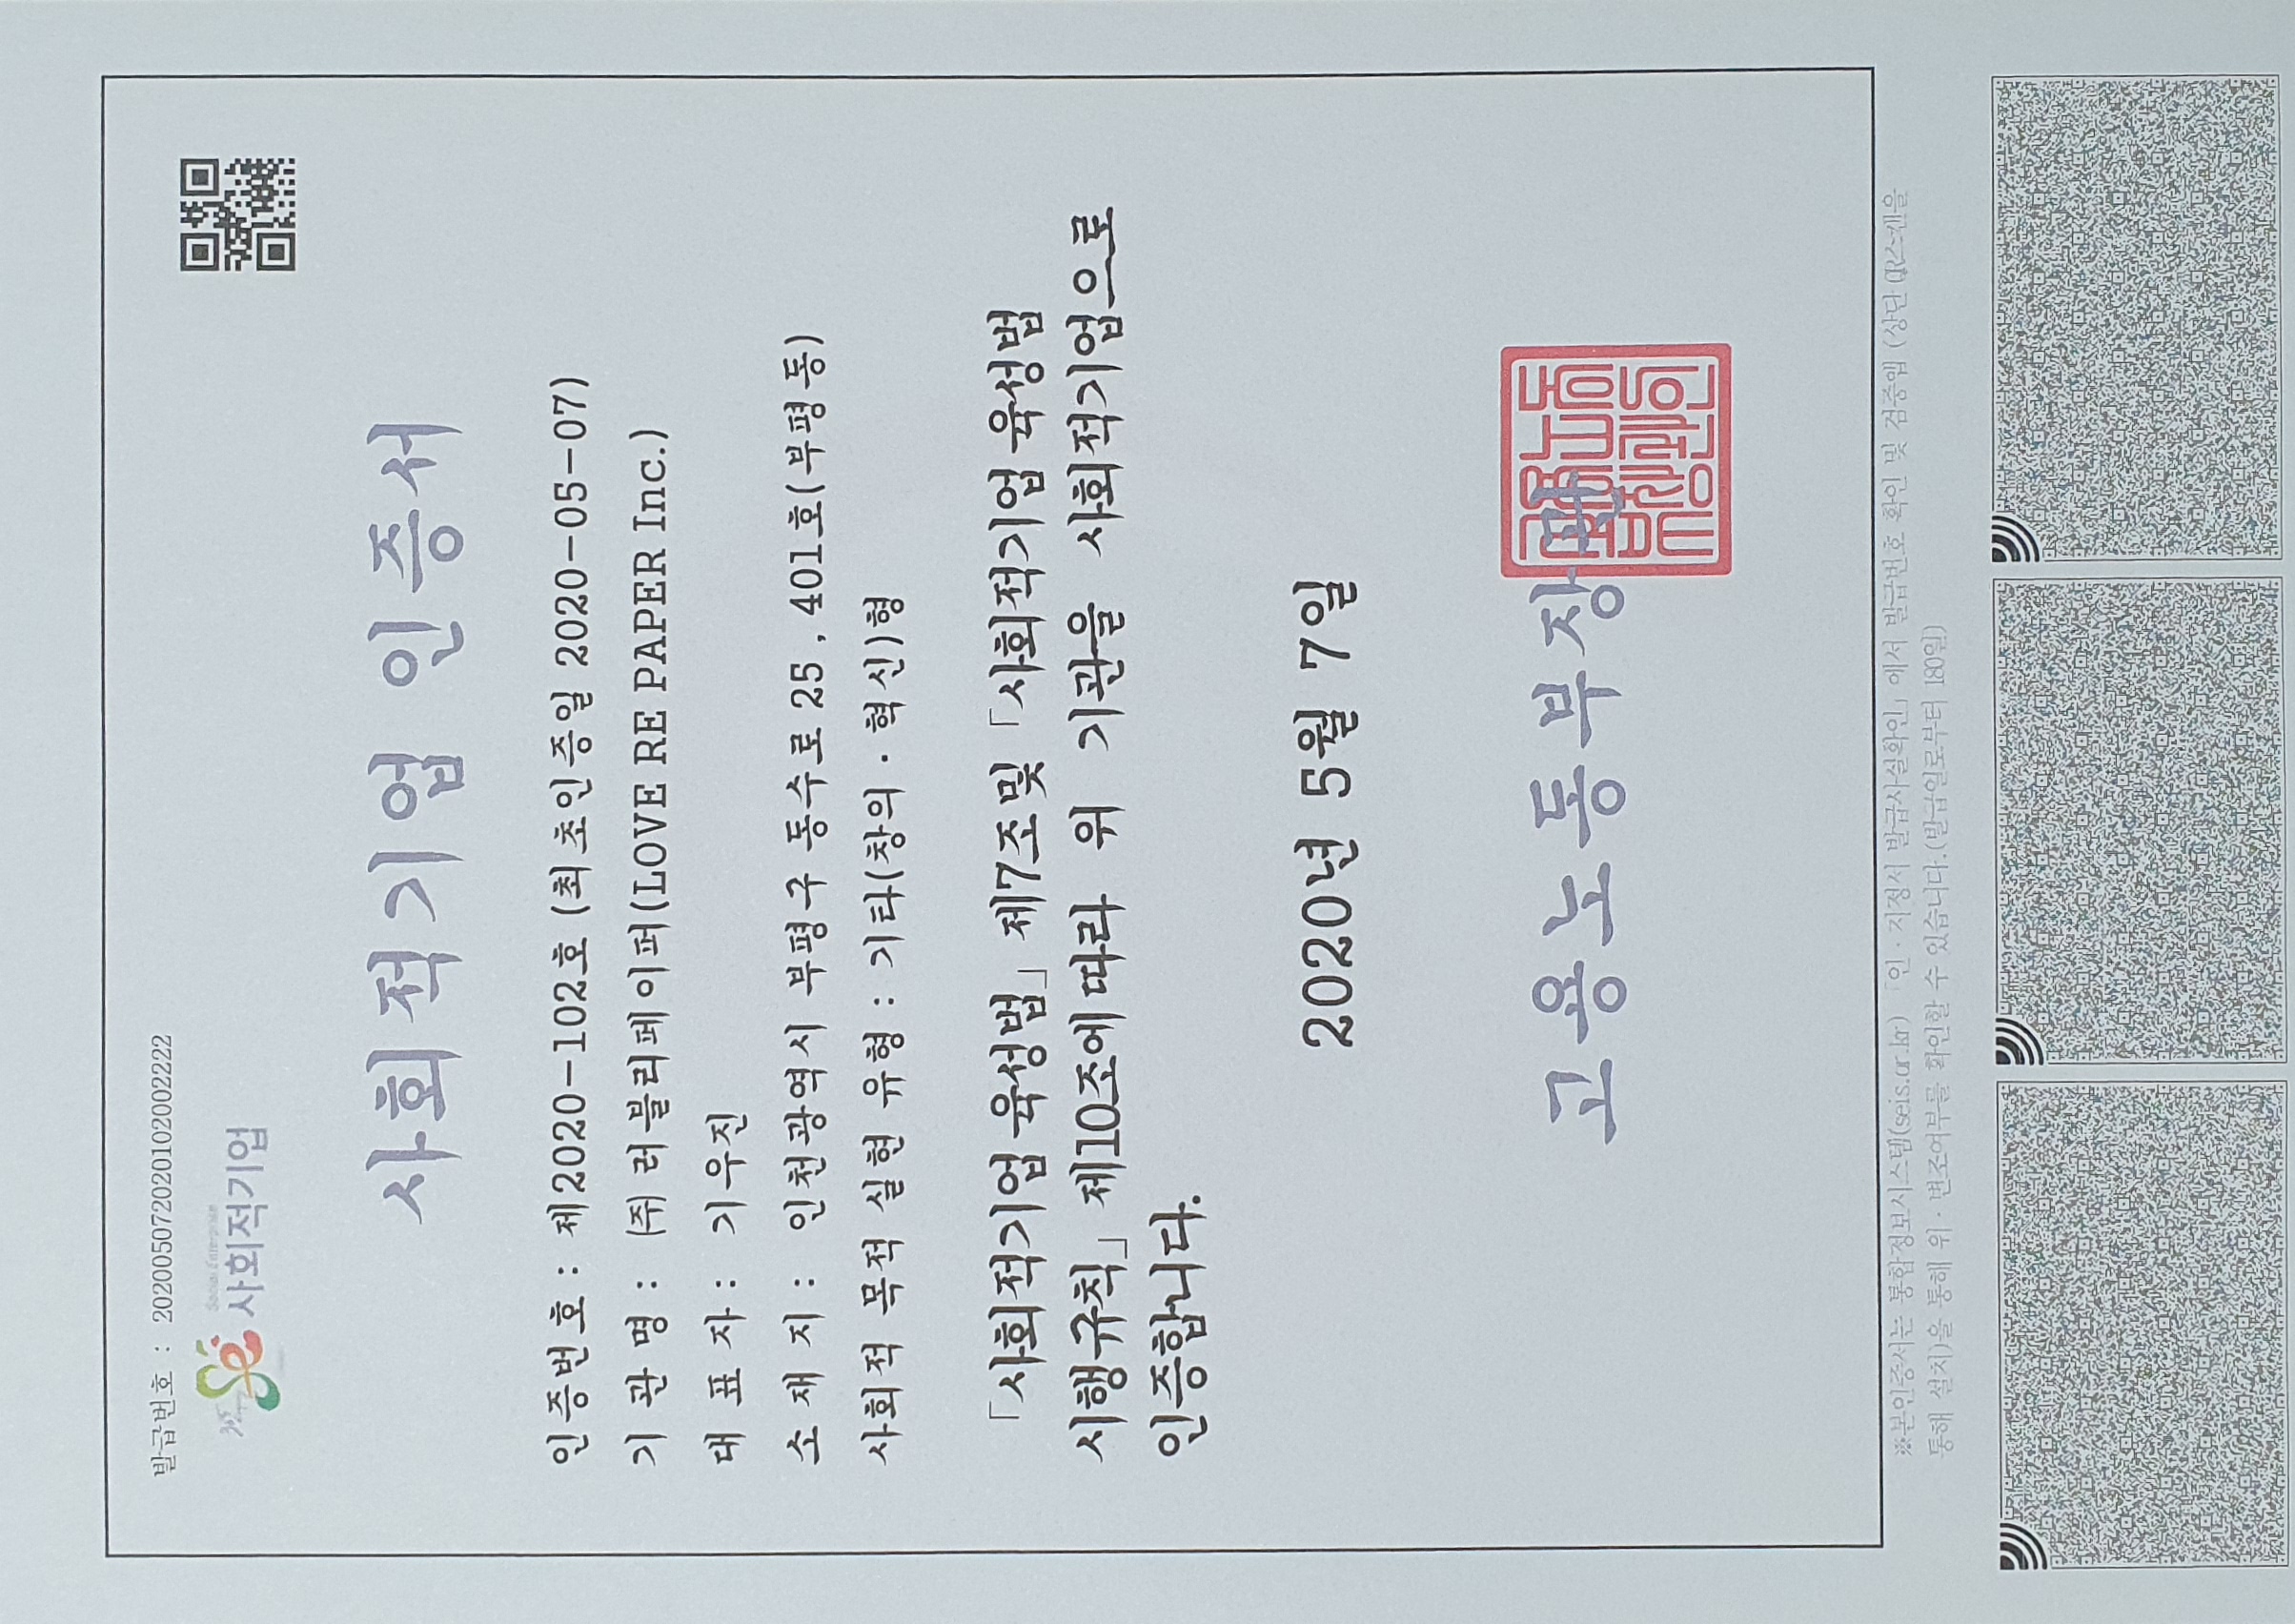 발급번호 : 2020050720201020002222
Social Enterprise
사회적기업
사회적기업 인증서
인증번호 : 제2020-102호 (최초인증일 2020-05-07)
기 관 명 : (주) 러블리페이퍼(LOVE RE PAPER Inc.)
대 표 자 : 기우진
소 재 지 : 인천광역시 부평구 동수로 25 , 401호(부평동)
사회적 목적 실현 유형 : 기타(창의 · 혁신)형
「사회적기업 육성법」 제7조 및 「사회적기업 육성법
시행규칙」 제10조에 따라 위 기관을 사회적기업으로
인증합니다.
2020년 5월 7일
고용노동부장관
※본인증서는 통합정보시스템(seis.or.kr) 「인 · 지정서 발급사실확인」에서 발급번호 확인 및 검증앱 (상단 QR스캔을
통해 설치)을 통해 위 · 변조여부를 확인할 수 있습니다.(발급일로부터 180일)